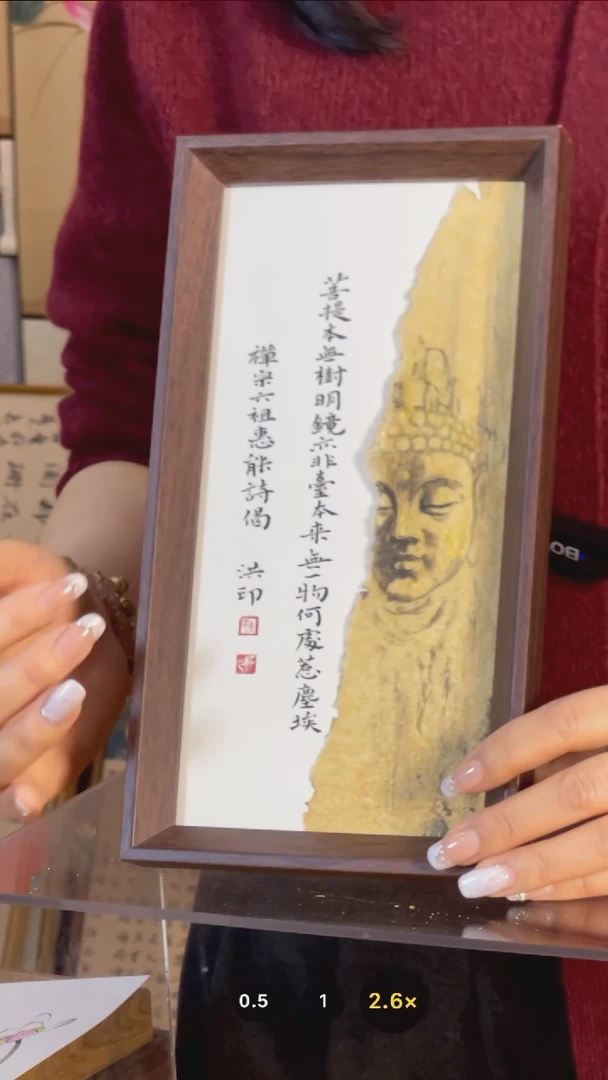 菩提本無樹明鏡亦非臺本来無一物何處惹塵埃
禪宗六祖惠能詩偈
洪印
0.5 1 2.6×